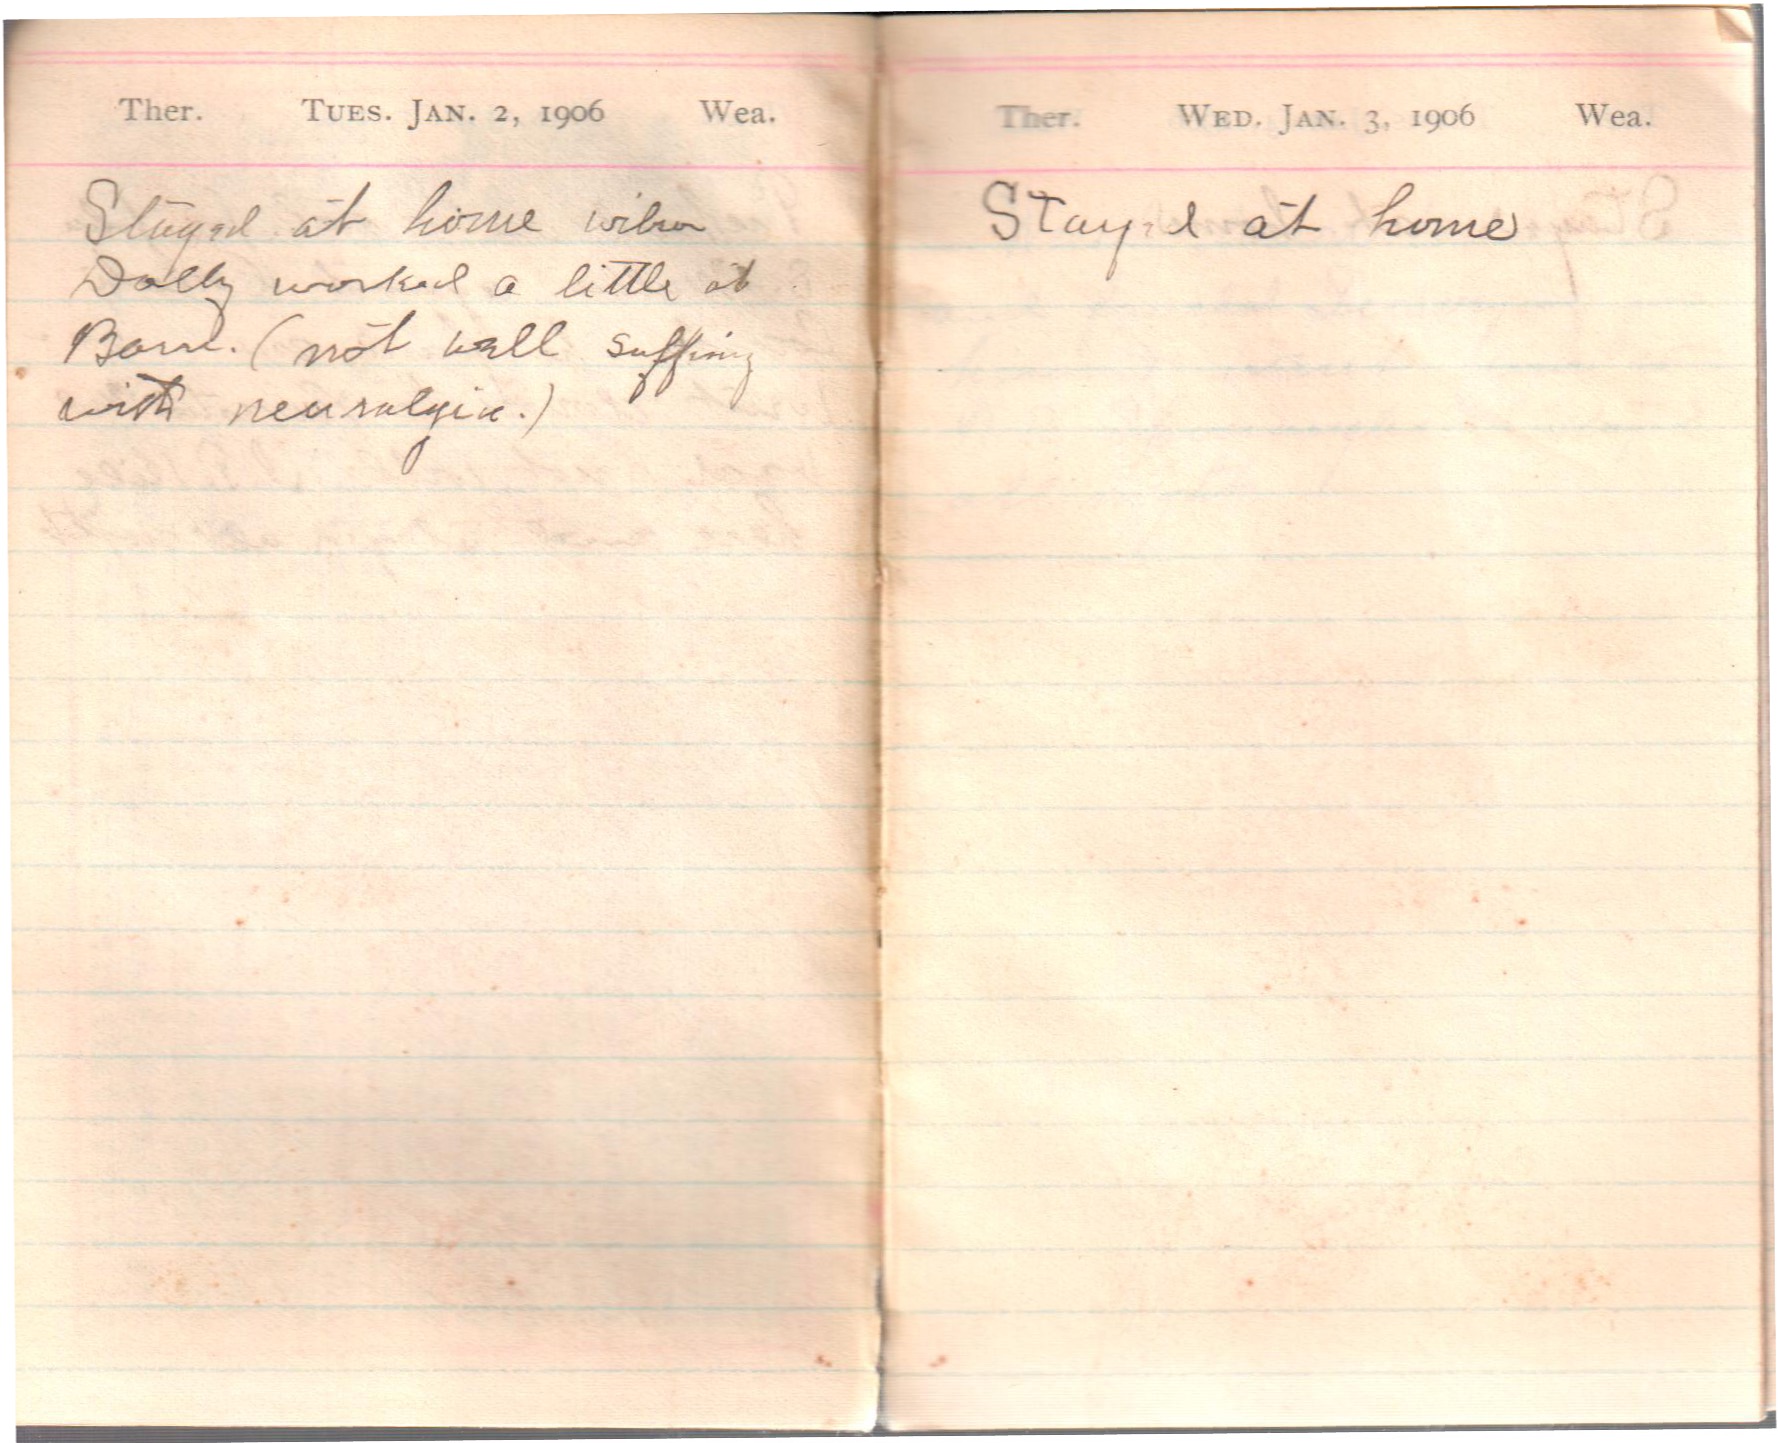 Ther. TUES. JAN. 2, 1906 Wea.
Stayed at home wilson
Dolly worked a little at
Barn. (not well suffing
with neuralgia.)
Ther. WED. JAN. 3, 1906 Wea.
Stayed at home